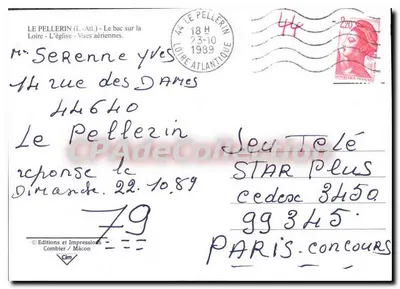 LE PELLERIN (L.-Atl.) - Le bac sur la
Loire - L'église - Vues aériennes.
Mr Serenne Yves
14 rue des Dames
44640
Le Pellerin
reponse le
Dimanche. 22.10.89
79
© Editions et Impressions
Combier / Mâcon
Cim
44 LE PELLERIN
18 H
23-10
1989
LOIRE ATLANTIQUE
44
2,20
Jeu Telé
STAR Plus
cedex 3450
99345.
PARIS-concours
CPA de Collection